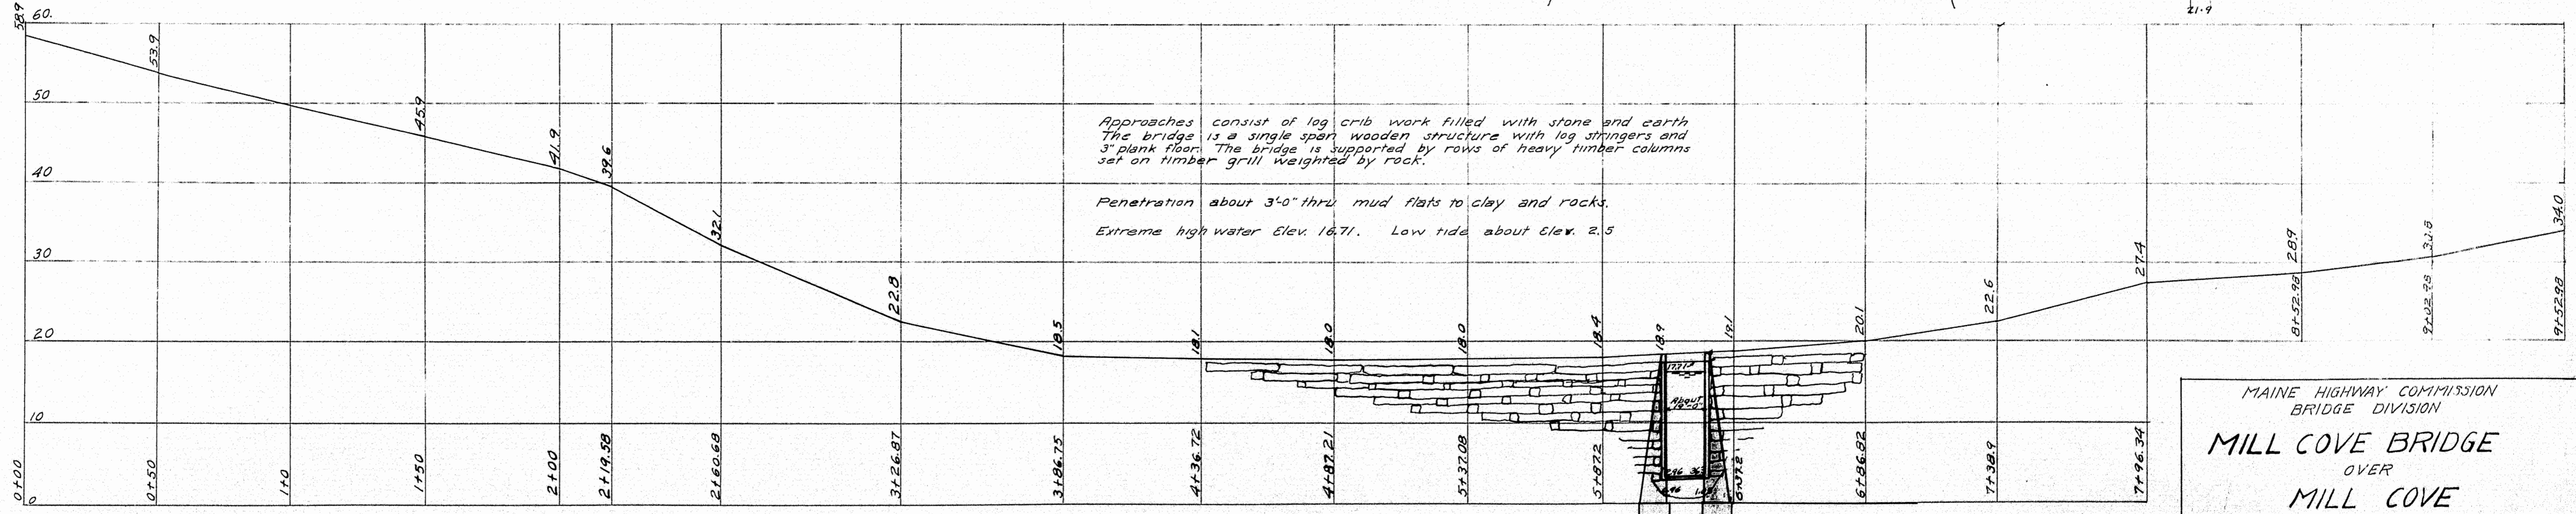 21.9
60.
58.9
53.9
50
45.9
41.9
39.6
40
32.1
30
22.8
20
18.5
18.1
18.0
18.0
18.4
18.9
19.1
20.1
22.6
27.4
28.9
34.0
Approaches consist of log crib work filled with stone and earth
The bridge is a single span wooden structure with log stringers and
3" plank floor. The bridge is supported by rows of heavy timber columns
set on timber grill weighted by rock.
Penetration about 3'-0" thru mud flats to clay and rocks.
Extreme high water Elev. 16.71. Low tide about Elev. 2.5
17.71
About
10
0
0+00
0+50
1+0
1+50
2+00
2+19.58
2+60.68
3+26.87
3+86.75
4+36.72
4+87.21
5+37.08
5+87.2
6+37.2
6+86.82
7+38.9
7+96.34
8+52.98
9+02.98
9+52.98
MAINE HIGHWAY COMMISSION
BRIDGE DIVISION
MILL COVE BRIDGE
OVER
MILL COVE